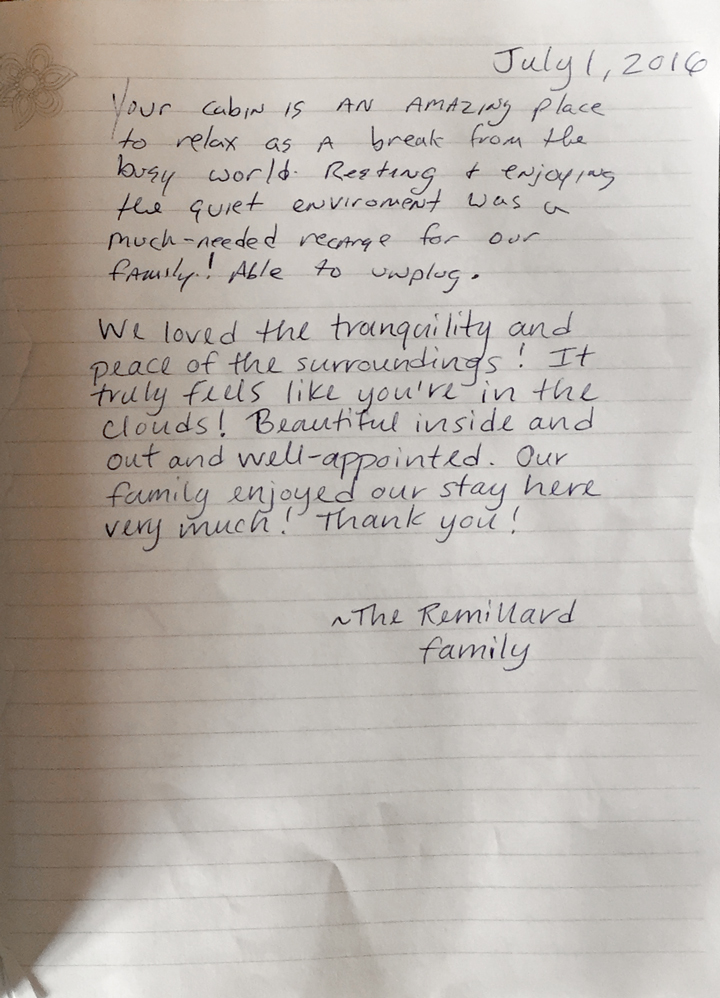 July 1, 2016
Your cabin is AN AMAZING place
to relax as A break from the
busy world. Resting + enjoying
the quiet enviroment was a
much-needed recarge for our
family! Able to unplug.
We loved the tranquility and
peace of the surroundings! It
truly feels like you're in the
clouds! Beautiful inside and
out and well-appointed. Our
family enjoyed our stay here
very much! Thank you!
~The Remillard
family